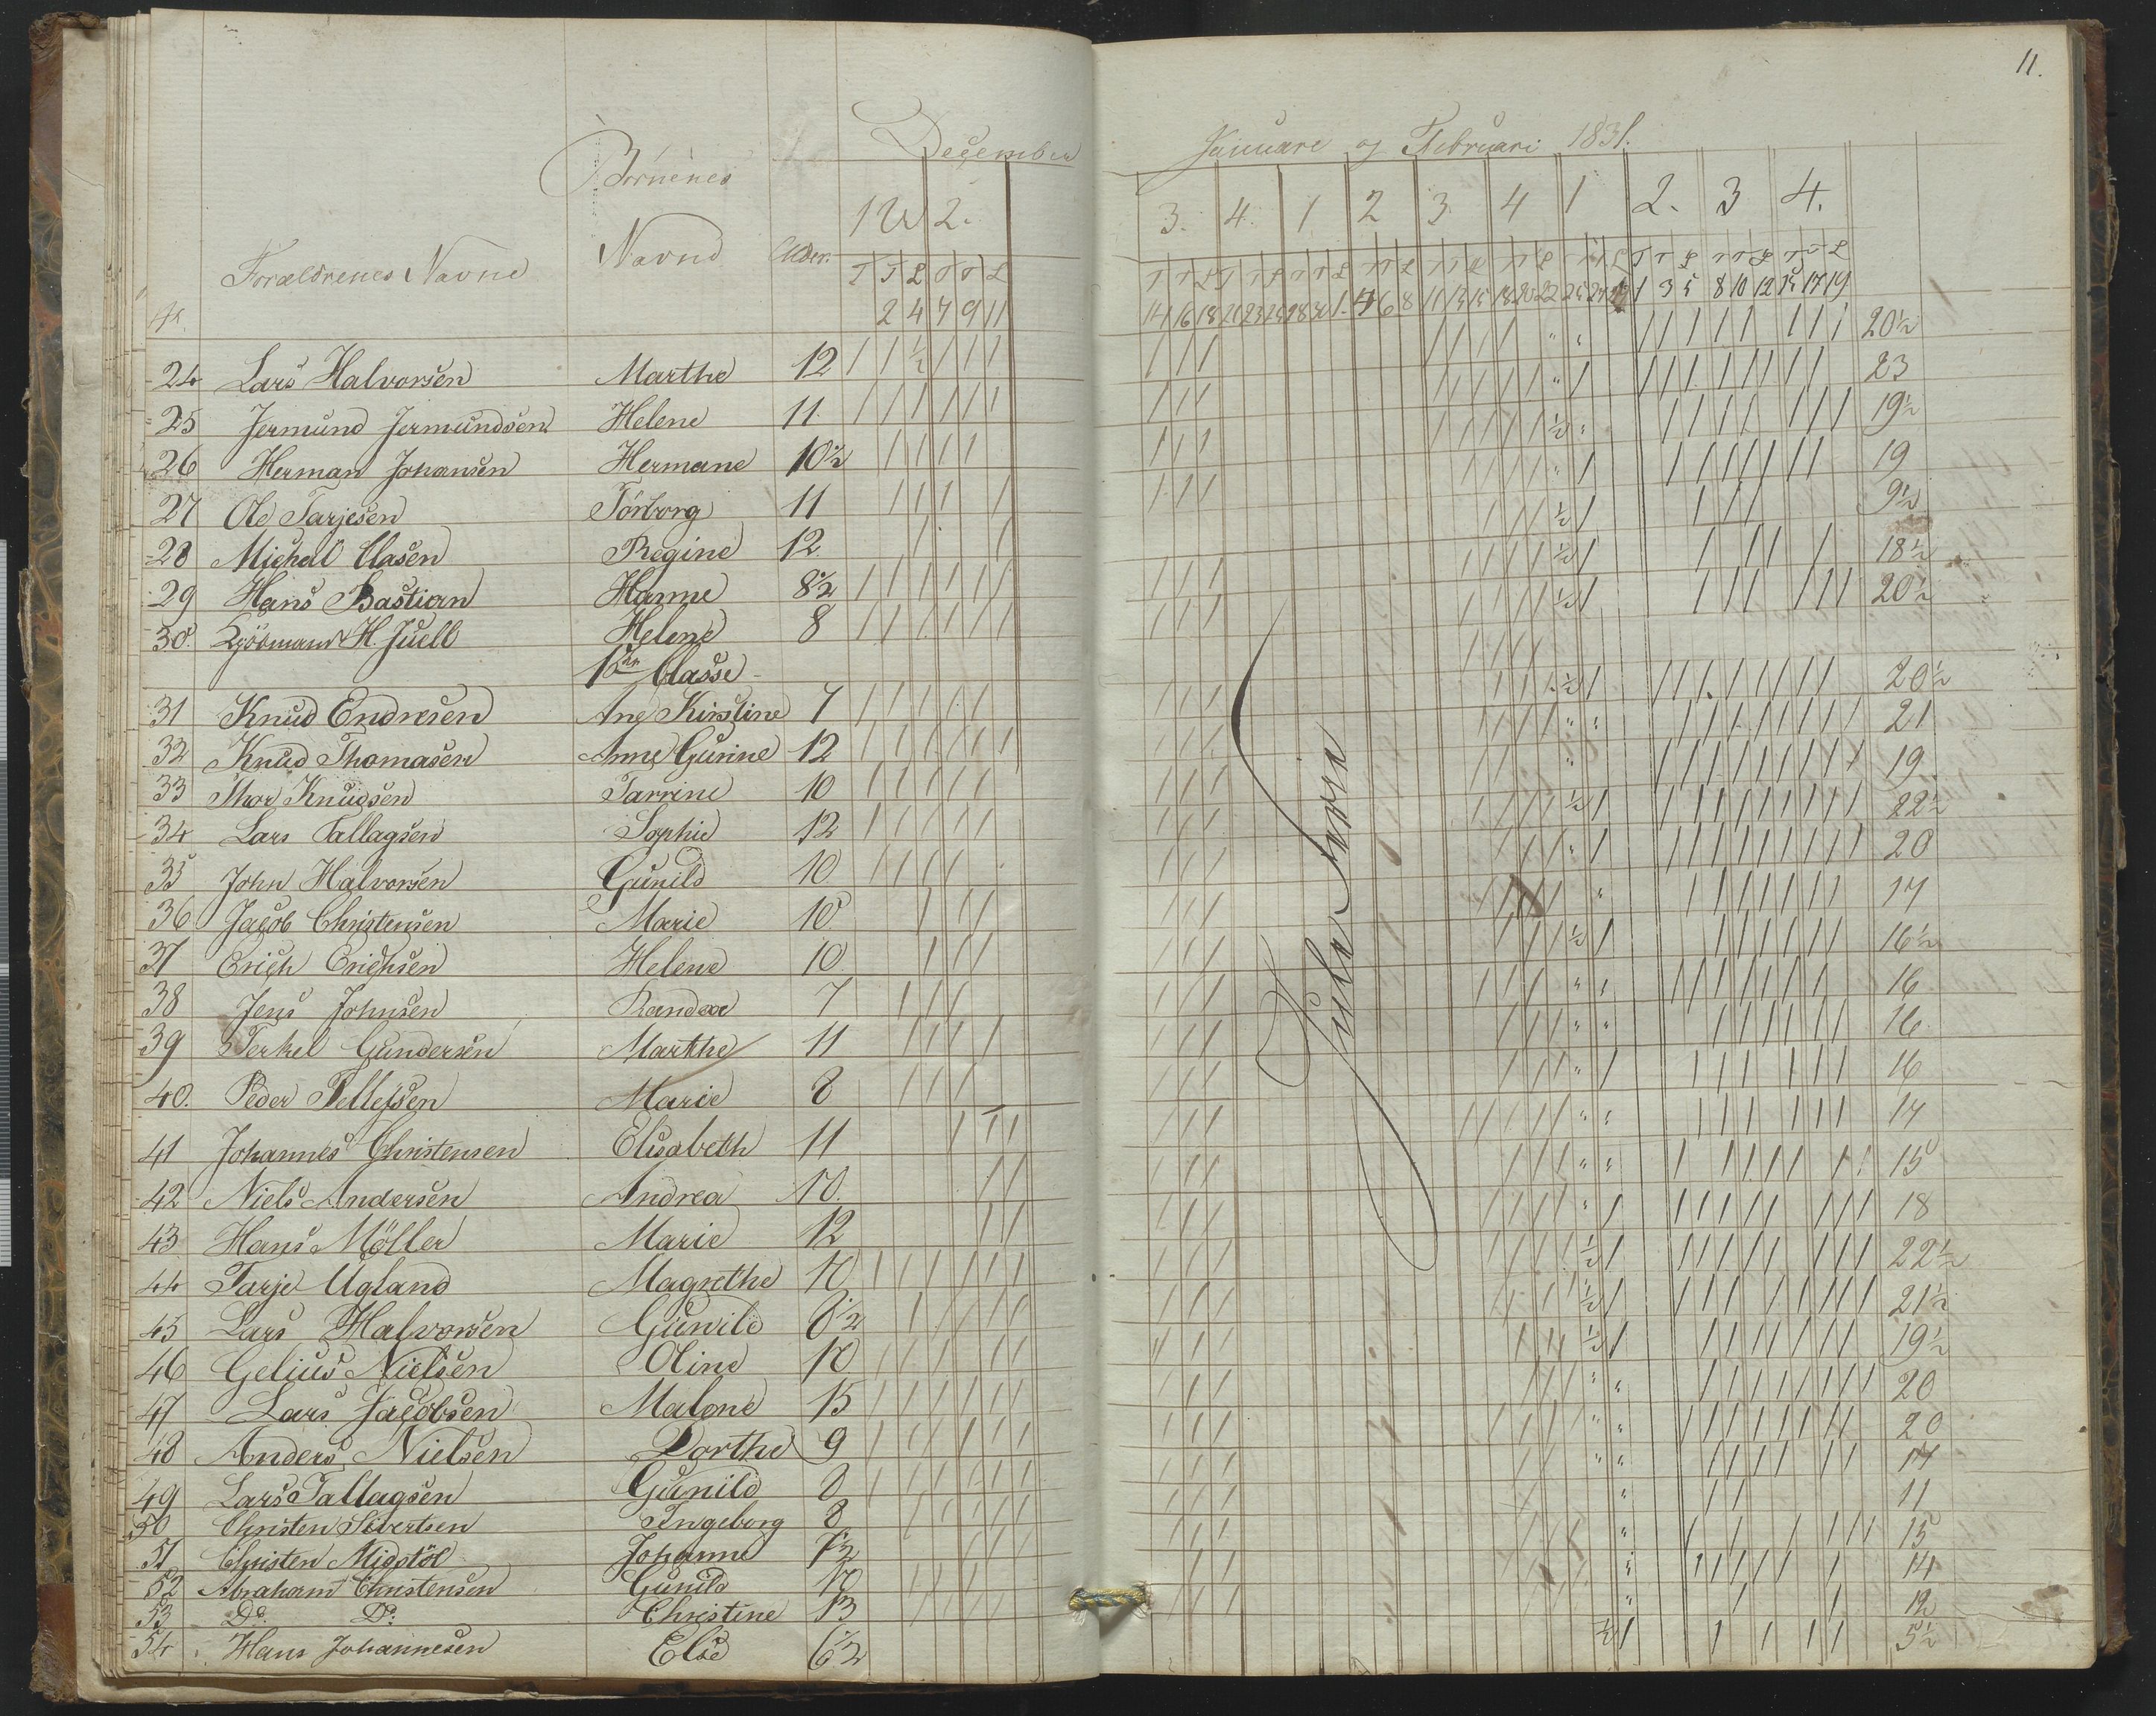 11.
December
Januare og Februari 1831.
Børnenes
1 U 2.
3. 4. 1 2 3 4 1 2. 3 4.
Forældrenes Navne Navne Alder.
T T L T T L
2 4 7 9 11
14 16 18 21 23 25 28 30 1 4 6 8 11 13 15 18 20 22 25 27 29 1 3 5 8 10 12 15 17 19
24 Lars Halvorsen Marthe 12 20½
25 Jermund Jermundsen Helene 11. 23
26 Herman Johansen Hermane 10½ 19½
27 Ole Tarjesen Torborg 11 19
28 Michael Clasen Regine 12 9½
29 Hans Bastian Hanne 8½ 18½
30. Kjöbmand H. Juell Helene 8 20½
1ste Classe
31 Knud Endresen Ane Kirstine 7 20½
32 Knud Thomasen Anne Gurine 12 21
33 Thor Knudsen Tarrine 10 19.
34 Lars Tallagsen Sophie 12 22½
35 John Halvorsen Gunild 10. 20
36 Jacob Christensen Marie 10 17
37 Erich Erichsen Helene 10 16½
38 Jens Johnsen Randea 7 16
39 Terkel Gundersen Marthe 11 16
40. Peder Tellefsen Marie 8 16
41 Johannes Christensen Elisabeth 11 14
42 Niels Andersen Andrea 10. 15
43 Hans Möller Marie 12 18
44 Tarje Ugland Magrethe 10 22½
45 Lars Halvorsen Gunild 8½ 21½
46 Gelius Nielsen Oline 10 19½
47 Lars Jacobsen Malene 15 20
48 Anders Nielsen Dorthe 9 20
49 Lars Tallagsen Gunild 8 17
50 Christen Sivertsen Ingeborg 8 11
51 Christen Migstöl Johanne 7½ 15
52 Abraham Christensen Gunild 10 14
53 Do. Do. Christine 13 12
54 Hans Johannesen Else 6½ 5½
Jule Feria